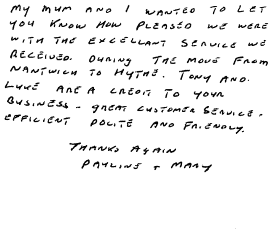 MY MUM AND I WANTED TO LET
YOU KNOW HOW PLEASED WE WERE
WITH THE EXCELLANT SERVICE WE
RECEIVED. DURING THE MOVE FROM
NANTWICH TO HYTHE. TONY AND
LUKE ARE A CREDIT TO YOUR
BUSINESS - GREAT CUSTOMER SERVICE.
EFFICIENT POLITE AND FRIENDLY.
THANKS AGAIN
PAULINE + MARY